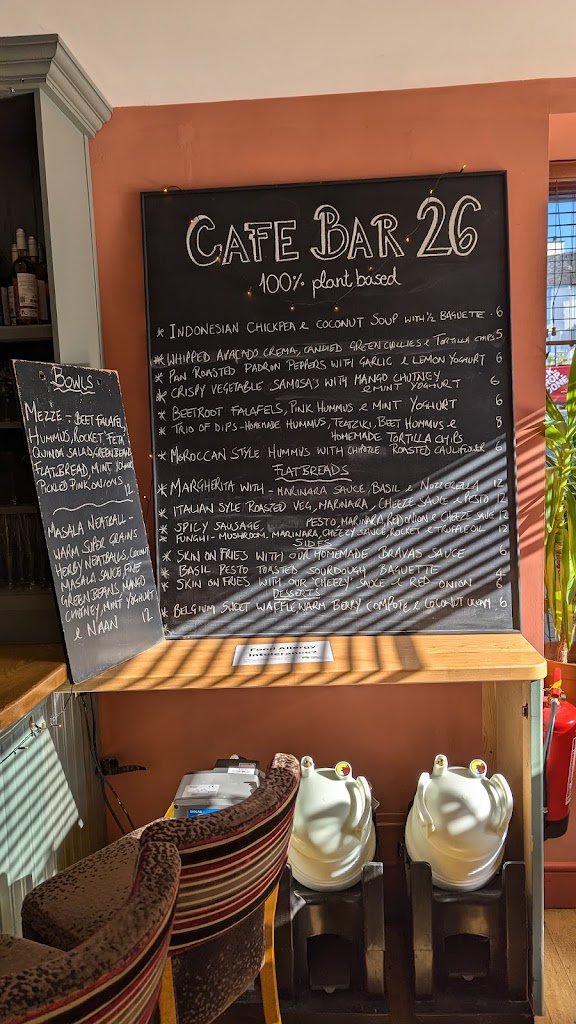 CAFE BAR 26
100% plant based
* INDONESIAN CHICKPEA & COCONUT SOUP WITH ½ BAGUETTE . 6
* WHIPPED AVACADO CREMA, CANDIED GREEN CHILLIES & TORTILLA CHIPS 5
* PAN ROASTED PADRON PEPPERS WITH GARLIC & LEMON YOGHURT 6
* CRISPY VEGETABLE SAMOSA'S WITH MANGO CHUTNEY
& MINT YOGHURT 6
* BEETROOT FALAFELS, PINK HUMMUS & MINT YOGHURT 6
* TRIO OF DIPS - HOMEMADE HUMMUS, TZATZIKI, BEET HUMMUS & 8
HOMEMADE TORTILLA CHIPS
* MOROCCAN STYLE HUMMUS WITH CHIPOTLE ROASTED CAULIFLOWER 6
FLATBREADS
* MARGHERITA WITH - MARINARA SAUCE, BASIL & NOZZERELLA 12
* ITALIAN STYLE ROASTED VEG, MARINARA, CHEEZE SAUCE & PESTO 12
* SPICY SAUSAGE, PESTO, MARINARA, RED ONION & CHEEZE SAUCE 12
* FUNGHI - MUSHROOM, MARINARA, CHEEZY SAUCE, ROCKET & TRUFFLE OIL 12
SIDES
* SKIN ON FRIES WITH OUR HOMEMADE BRAVAS SAUCE 6
* BASIL PESTO TOASTED SOURDOUGH BAGUETTE 4
* SKIN ON FRIES WITH OUR 'CHEEZY' SAUCE & RED ONION 6
DESSERTS
* BELGIUM SWEET WAFFLE, WARM BERRY COMPOTE & COCONUT CREAM . 6
BOWLS
MEZZE - BEET FALAFEL,
HUMMUS, ROCKET, 'FETA'
QUINOA SALAD, GREEN BEANS
FLATBREAD, MINT YOGHURT
PICKLED PINK ONIONS 12
MASALA NEATBALL -
WARM SUPER GRAINS
HERBY NEATBALLS, COCONUT
MASALA SAUCE, FINE
GREEN BEANS, MANGO
CHUTNEY, MINT YOGHURT
& NAAN 12
Food Allergy
Intolerance?